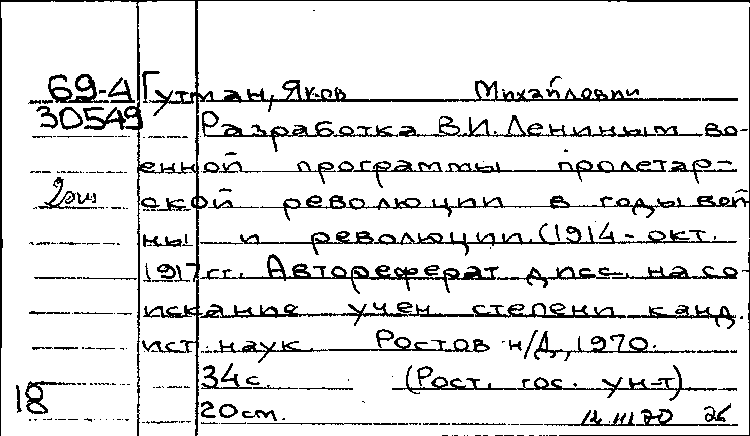 69-4 Гутман, Яков Михайлович
30549 Разработка В.И. Лениным во-
енной программы пролетар-
2 экз ской революции в годы вой
ны и революции. (1914 - окт.
1917 гг. Автореферат дисс. на со-
искание учен степени канд.
ист. наук. Ростов н/Д, 1970.
34 с. (Рост. гос. ун-т).
18 20 см. 12 III 70 26